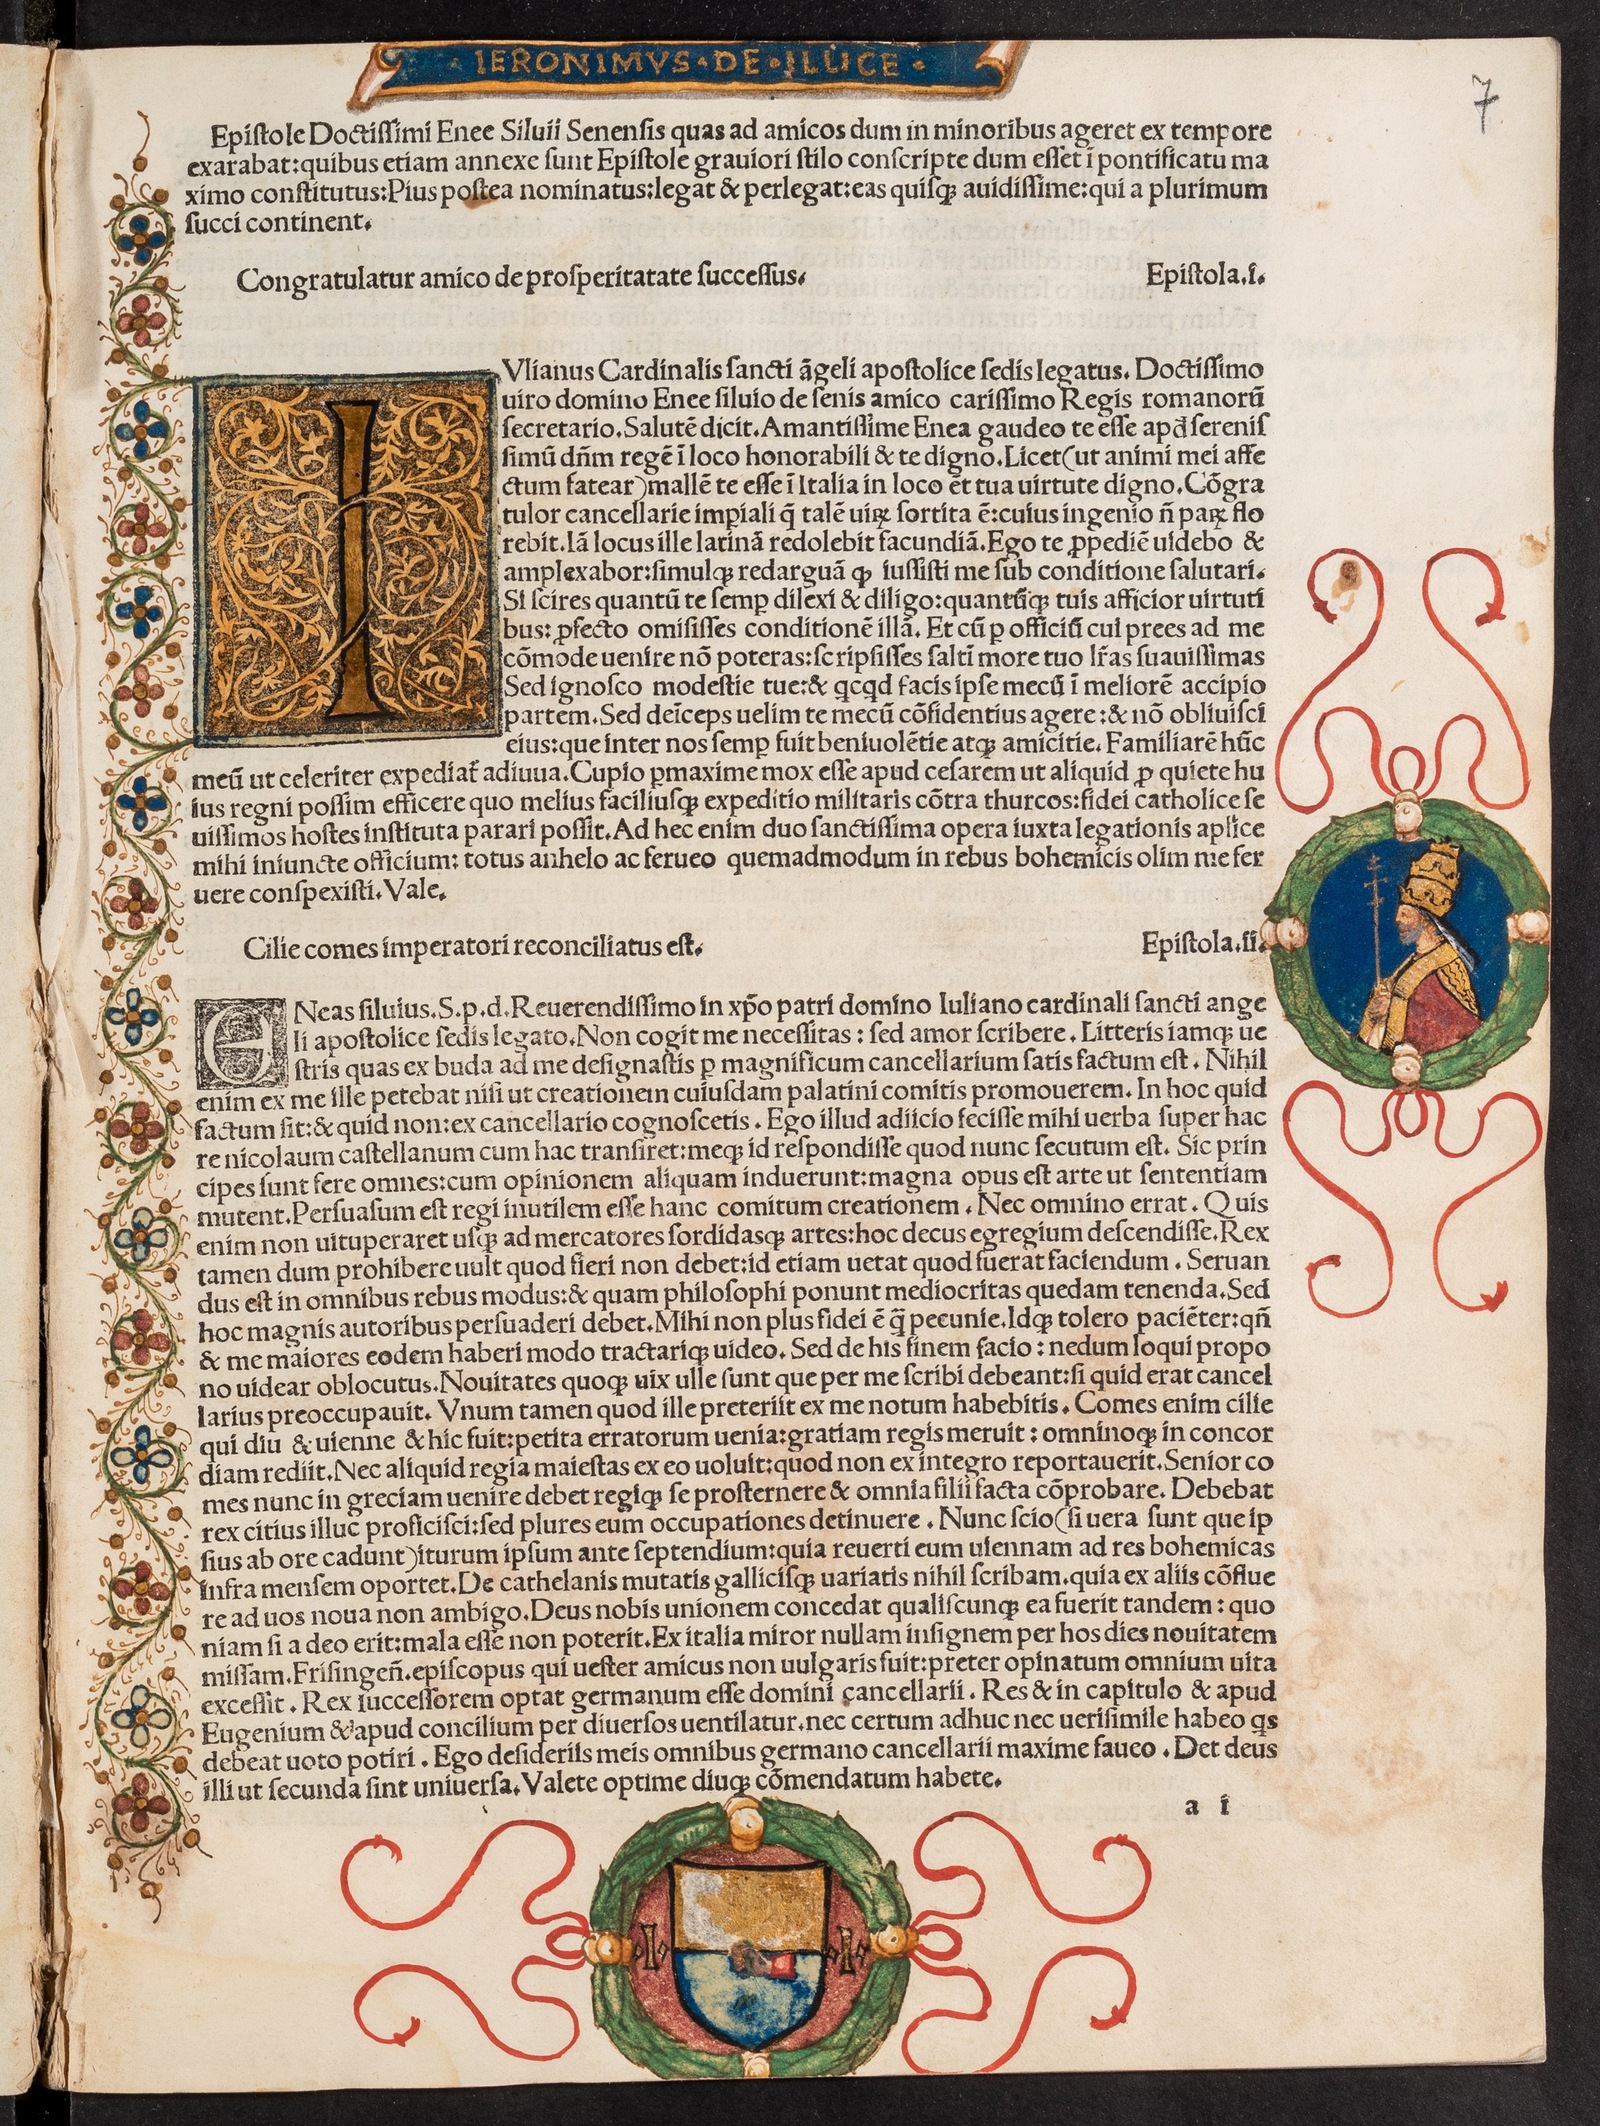 IERONIMVS·DE·ILLICE·
7
Epiſtole Doctiſſimi Enee Siluii Senenſis quas ad amicos dum in minoribus ageret ex tempore
exarabat:quibus etiam annexe ſunt Epiſtole grauiori ſtilo conſcripte dum eſſet ī pontificatu ma
ximo conſtitutus:Pius poſtea nominatus:legat & perlegat:eas quiſqꝫ auidiſſime:qui a plurimum
ſucci continent.
Congratulatur amico de proſperitatate ſucceſſus. Epiſtola.i.
IVlianus Cardinalis ſancti āgeli apoſtolice ſedis legatus. Doctiſſimo
uiro domino Enee ſiluio de ſenis amico cariſſimo Regis romanorū
ſecretario.Salutē dicit.Amantiſſime Enea gaudeo te eſſe apđ ſereniſ
ſimū dn̄m regē ī loco honorabili & te digno.Licet(ut animi mei affe
ctum fatear)mallē te eſſe ī Italia in loco ēt tua uirtute digno.Cōgra
tulor cancellarie imꝑiali q̄ talē uiꝝ ſortita ē:cuius ingenio n̄ paꝝ flo
rebit.Iā locus ille latinā redolebit facundiā.Ego te ꝓpediē uidebo &
amplexabor:ſimulqꝫ redarguā ꝙ iuſſiſti me ſub conditione ſalutari.
Si ſcires quantū te ſemꝑ dilexi & diligo:quantūqꝫ tuis afficior uirtuti
bus: ꝓfecto omiſiſſes conditionē illā. Et cū ꝑ officiū cui prees ad me
cōmode uenire nō poteras:ſcripſiſſes ſaltī more tuo lr̄as ſuauiſſimas
Sed ignoſco modeſtie tue:& qcqd facis ipſe mecū ī meliorē accipio
partem.Sed deīceps uelim te mecū cōfidentius agere:& nō obliuiſci
eius:que inter nos ſemꝑ fuit beniuolētie atqꝫ amicitie.Familiarē hūc
meū ut celeriter expediat̄ adiuua.Cupio ꝑmaxime mox eſſe apud ceſarem ut aliquid ꝓ quiete hu
ius regni poſſim efficere quo melius faciliuſqꝫ expeditio militaris cōtra thurcos:fidei catholice ſe
uiſſimos hoſtes inſtituta parari poſſit.Ad hec enim duo ſanctiſſima opera iuxta legationis apl̄ice
mihi iniuncte officium: totus anhelo ac ferueo quemadmodum in rebus bohemicis olim me fer
uere conſpexiſti.Vale.
Cilie comes imperatori reconciliatus eſt. Epiſtola.ii.
ENeas ſiluius.S.p.d.Reuerendiſſimo in xp̄o patri domino Iuliano cardinali ſancti ange
li apoſtolice ſedis legato.Non cogit me neceſſitas : ſed amor ſcribere.Litteris iamqꝫ ue
ſtris quas ex buda ad me deſignaſtis ꝑ magnificum cancellarium ſatis factum eſt. Nihil
enim ex me ille petebat niſi ut creationem cuiuſdam palatini comitis promouerem. In hoc quid
factum ſit:& quid non:ex cancellario cognoſcetis . Ego illud adiicio feciſſe mihi uerba ſuper hac
re nicolaum caſtellanum cum hac tranſiret:meqꝫ id reſpondiſſe quod nunc ſecutum eſt. Sic prin
cipes ſunt fere omnes:cum opinionem aliquam induerunt:magna opus eſt arte ut ſententiam
mutent.Perſuaſum eſt regi inutilem eſſe hanc comitum creationem . Nec omnino errat . Quis
enim non uituperaret uſqꝫ ad mercatores ſordidaſqꝫ artes:hoc decus egregium deſcendiſſe.Rex
tamen dum prohibere uult quod fieri non debet:id etiam uetat quod fuerat faciendum . Seruan
dus eſt in omnibus rebus modus:& quam philoſophi ponunt mediocritas quedam tenenda.Sed
hoc magnis autoribus perſuaderi debet.Mihi non plus fidei ē q̄ pecunie.Idqꝫ tolero paciēter:qn̄
& me maiores eodem haberi modo tractariqꝫ uideo. Sed de his finem facio : nedum loqui propo
no uidear oblocutus.Nouitates quoqꝫ uix ulle ſunt que per me ſcribi debeant:ſi quid erat cancel
larius preoccupauit. Vnum tamen quod ille preteriit ex me notum habebitis . Comes enim cilie
qui diu & uienne & hic fuit:petita erratorum uenia:gratiam regis meruit : omninoqꝫ in concor
diam rediit.Nec aliquid regia maieſtas ex eo uoluit:quod non ex integro reportauerit.Senior co
mes nunc in greciam uenire debet regiqꝫ ſe proſternere & omnia filii facta cōprobare. Debebat
rex citius illuc proficiſci:ſed plures eum occupationes detinuere . Nunc ſcio(ſi uera ſunt que ip
ſius ab ore cadunt)iturum ipſum ante ſeptendium:quia reuerti eum uiennam ad res bohemicas
infra menſem oportet.De cathelanis mutatis galliciſqꝫ uariatis nihil ſcribam.quia ex aliis cōflue
re ad uos noua non ambigo.Deus nobis unionem concedat qualiſcunqꝫ ea fuerit tandem : quo
niam ſi a deo erit:mala eſſe non poterit.Ex italia miror nullam inſignem per hos dies nouitatem
miſſam.Friſingen̄.epiſcopus qui ueſter amicus non uulgaris fuit:preter opinatum omnium uita
exceſſit . Rex ſucceſſorem optat germanum eſſe domini cancellarii . Res & in capitulo & apud
Eugenium & apud concilium per diuerſos uentilatur.nec certum adhuc nec ueriſimile habeo qs
debeat uoto potiri . Ego deſideriis meis omnibus germano cancellarii maxime faueo . Det deus
illi ut ſecunda ſint uniuerſa.Valete optime diuqꝫ cōmendatum habete.
a i